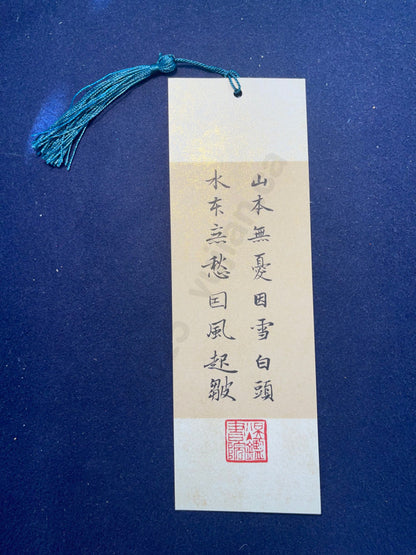 山本無憂因雪白頭
水本無愁囙風起皺